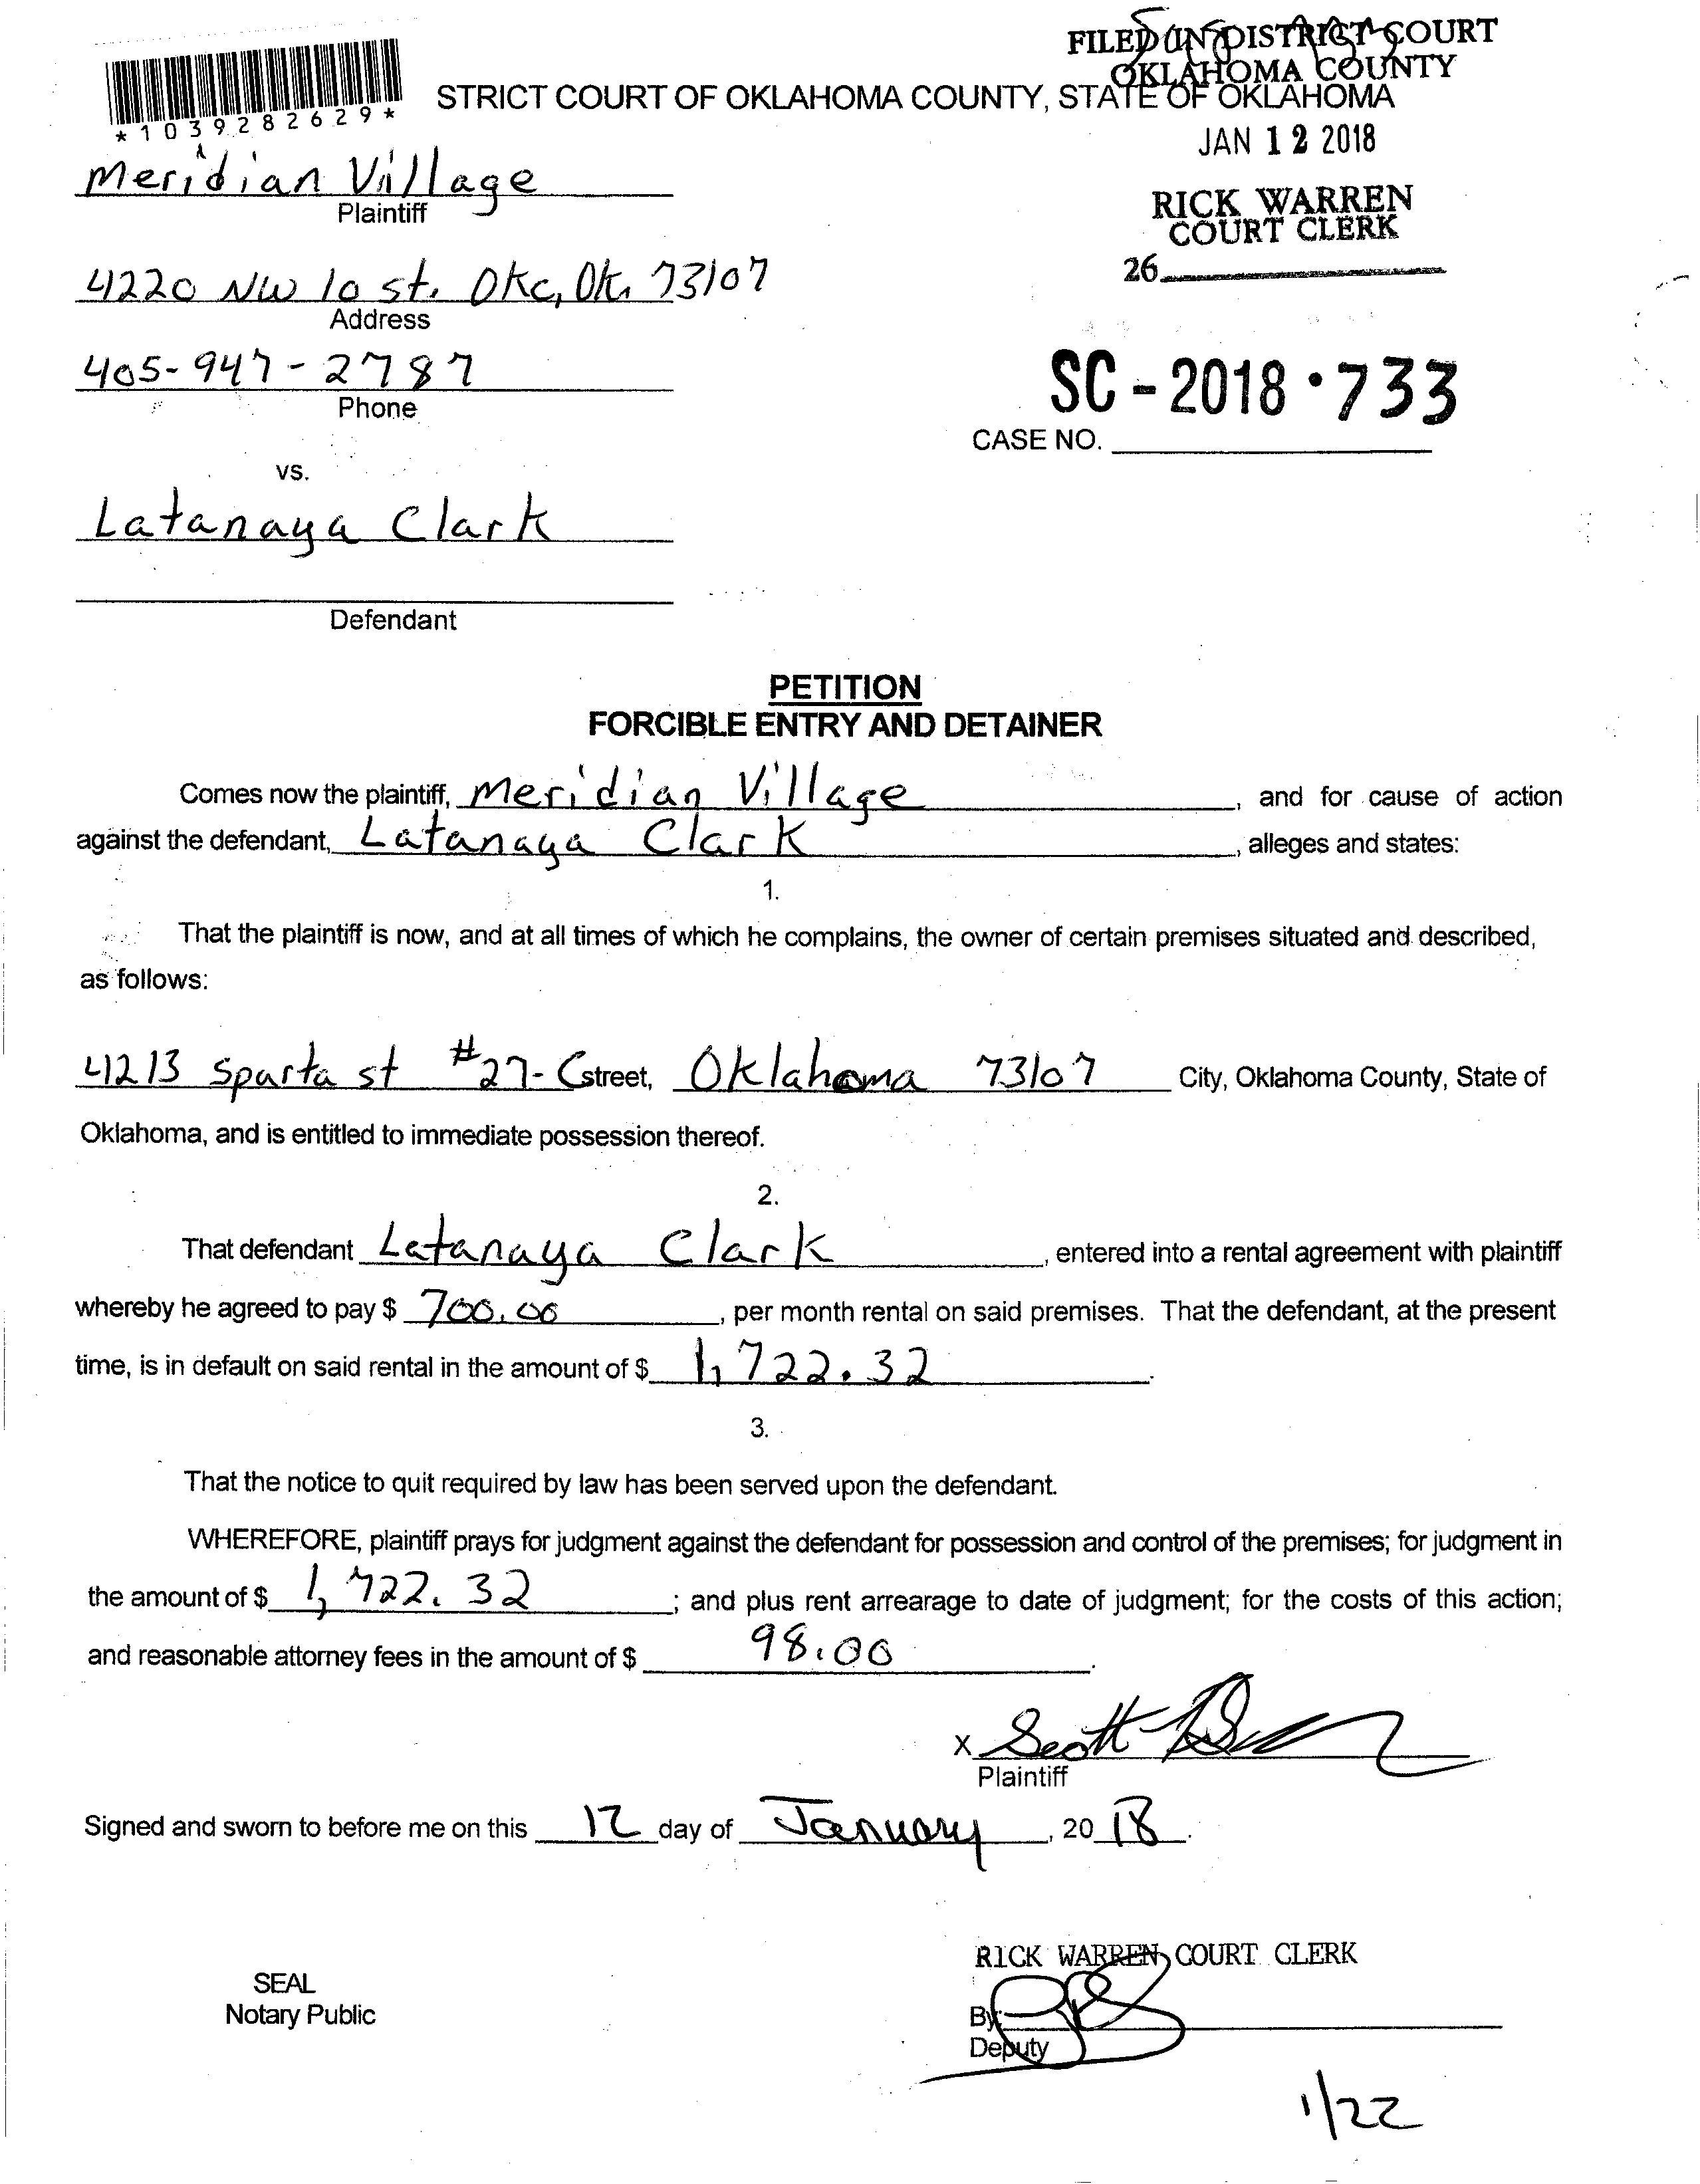 FILED IN DISTRICT COURT
OKLAHOMA COUNTY
STRICT COURT OF OKLAHOMA COUNTY, STATE OF OKLAHOMA
*1039282629*
JAN 12 2018
Meridian Village
Plaintiff
RICK WARREN
COURT CLERK
26
4220 NW 10 st. OKC, Ok. 73107
Address
405-947-2787
Phone
SC-2018·733
CASE NO.
vs.
Latanaya Clark
Defendant
PETITION
FORCIBLE ENTRY AND DETAINER
Comes now the plaintiff, Meridian Village, and for cause of action
against the defendant, Latanaya Clark, alleges and states:
1.
That the plaintiff is now, and at all times of which he complains, the owner of certain premises situated and described,
as follows:
4213 Sparta st #27-C street, Oklahoma 73107 City, Oklahoma County, State of
Oklahoma, and is entitled to immediate possession thereof.
2.
That defendant Latanaya Clark, entered into a rental agreement with plaintiff
whereby he agreed to pay $ 700.00, per month rental on said premises. That the defendant, at the present
time, is in default on said rental in the amount of $ 1,722.32.
3.
That the notice to quit required by law has been served upon the defendant.
WHEREFORE, plaintiff prays for judgment against the defendant for possession and control of the premises; for judgment in
the amount of $ 1,722.32; and plus rent arrearage to date of judgment; for the costs of this action;
and reasonable attorney fees in the amount of $ 98.00.
X Scott
Plaintiff
Signed and sworn to before me on this 12 day of January, 2018.
RICK WARREN, COURT CLERK
SEAL
Notary Public
By:
Deputy
1/22